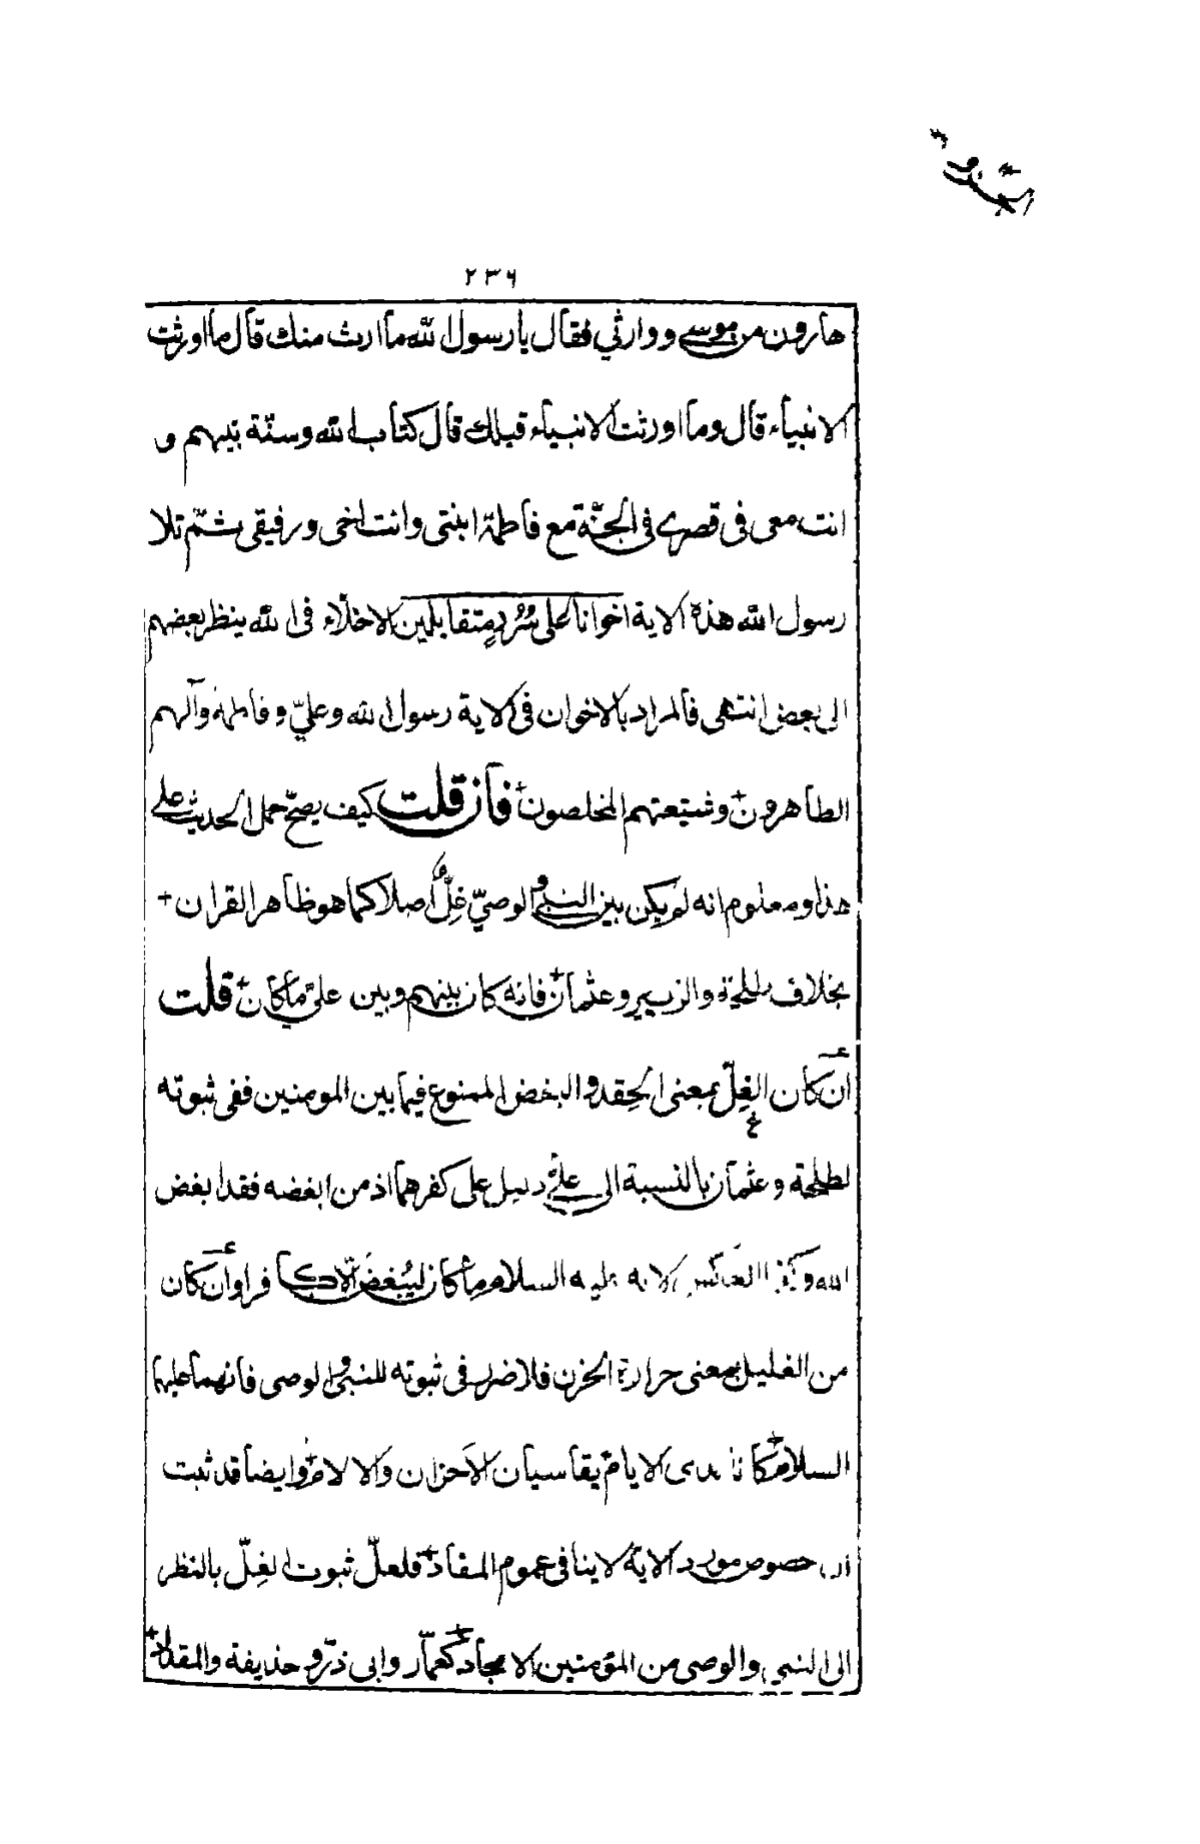 ٢٣٦
هارون من موسى ووارثي فقال يا رسول الله ما ارث منك قال ما اورثت
الانبياء قال وما اورثت الانبياء قبلك قال كتاب الله وسنّة نبيهم و
انت معى فى قصرى فى الجنّة مع فاطمة ابنتى وانت اخى ورفيقى ثمّ تلا
رسول الله هذه الاية اخوانا على سُرُرٍ متقابلين الاخلّاء فى الله ينظر بعضهم
الى بعض انتهى فالمراد بالاخوان فى الاية رسول الله وعليّ وفاطمة وآلهم
الطاهرون وشيعتهم المخلصون فان قلت كيف يصحّ حمل الحديث على
هذا ومعلوم انه لم يكن بين النبي والوصيّ غِلٌّ اصلا كما هو ظاهر القران
بخلاف طلحة والزبير وعثمان فانه كان بينهم وبين عليّ ما كان قلت
ان كان الغِلّ بمعنى الحِقد والبغض الممنوع فيما بين المومنين ففى ثبوته
لطلحة وعثمان بالنسبة الى علىّ دليل على كفرهما اذ من ابغضه فقد ابغض
الله و العكس لانه عليه السلام ما كان ليُبغض الّا كافرا وان كان
من الغليل بمعنى حرارة الحزن فلا ضير فى ثبوته للنبى والوصى فانهما عليهما
السلام كانا مدى الايام يقاسيان الاحزان والالام وايضا قد ثبت
ان خصوص مورد الاية لا ينافى عموم المفاد فلعلّ ثبوت الغِلّ بالنظر
الى النبي والوصى من المؤمنين الامجاد كعمّار وابى ذرّ وحذيفة والمقداد